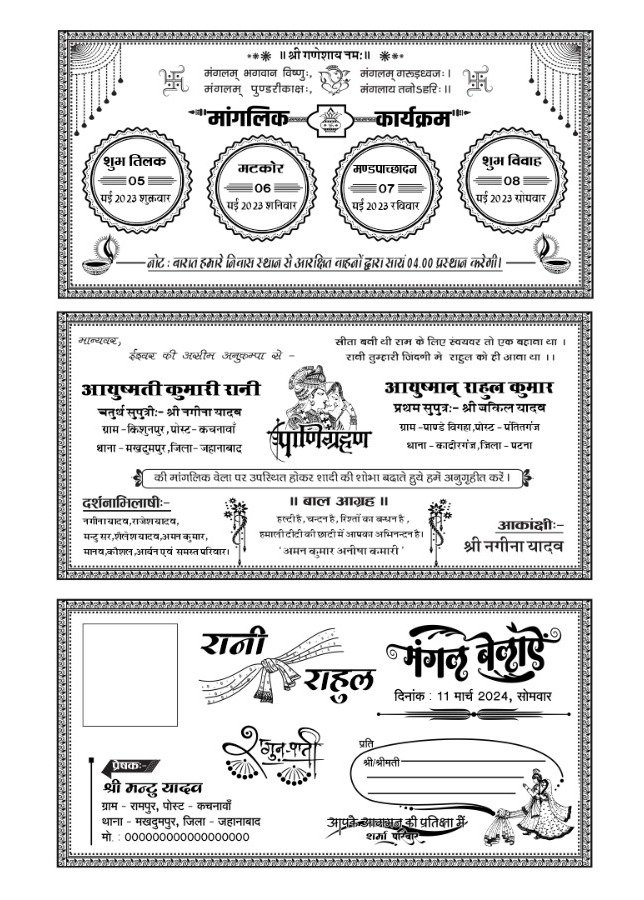 ॥ श्री गणेशाय नमः॥
मंगलम् भगवान विष्णुः, मंगलम् गरूड़ध्वजः।
मंगलम् पुण्डरीकाक्षः, मंगलाय तनोऽहरिः।।
मांगलिक कार्यक्रम
शुभ तिलक
05
मई 2023 शुक्रवार
मटकोर
06
मई 2023 शनिवार
मण्डपाच्छादन
07
मई 2023 रविवार
शुभ विवाह
08
मई 2023 सोमवार
नोट : बारात हमारे निवास स्थान से आरक्षित वाहनों द्वारा सायं 04.00 प्रस्थान करेगी।
मान्यवर,
ईश्वर की असीम अनुकम्पा से -
सीता बनी थी राम के लिए स्वंयवर तो एक बहाना था ।
रानी तुम्हारी जिंदगी मे राहुल को ही आना था ।।
आयुष्मती कुमारी रानी
चतुर्थ सुपुत्री:- श्री नगीना यादव
ग्राम -किशुनपुर,पोस्ट- कचनावाँ
थाना - मखदुमपुर,जिला- जहानाबाद
पाणिग्रहण
आयुष्मान् राहुल कुमार
प्रथम सुपुत्र:- श्री बकिल यादव
ग्राम -पाण्डे विगहा,पोस्ट - पंतितगंज
थाना - कादीरगंज,जिला - पटना
की मांगलिक वेला पर उपस्थित होकर शादी की शोभा बढाते हुये हमें अनुगृहीत करें ।
दर्शनाभिलाषी:-
नगीना यादव,राजेश यादव,
मन्टु सर,शैलेश यादव,अमन कुमार,
मानव,कौशल,आर्यन एवं समस्त परिवार।
॥ बाल आग्रह ॥
हल्दी है, चन्दन है, रिश्तों का बन्धन है ,
हमाली दीदी की छादी में आपका अभिनन्दन है।
'अमन कुमार अनीषा कुमारी'
आकांक्षी:-
श्री नगीना यादव
रानी
राहुल
मंगल बेलाऐं
दिनांक : 11 मार्च 2024, सोमवार
शगुन-पाती
प्रेषक:-
श्री मन्टु यादव
ग्राम - रामपुर, पोस्ट - कचनावाँ
थाना - मखदुमपुर, जिला - जहानाबाद
मो. : 000000000000000000
प्रति
श्री/श्रीमती
आपके आगमन की प्रतिक्षा में
शर्मा परिवार